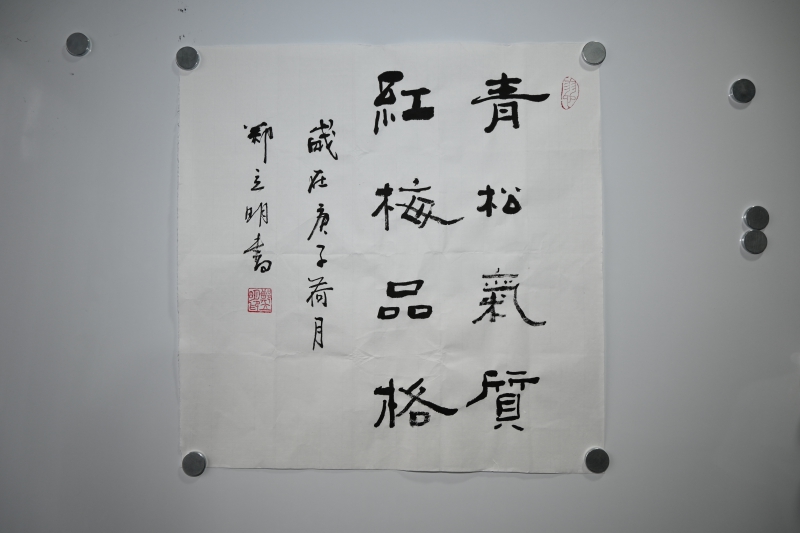 青松氣質
紅梅品格
歲在庚子荷月
鄭立明書